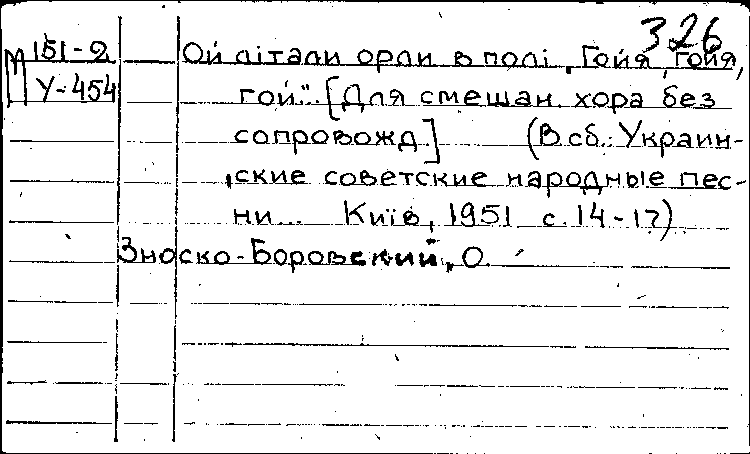 326
М 151-2
У-454
Ой літали орли в полі, „Гойя, гойя,
гой". [Для смешан. хора без
сопровожд.] (В сб.: Украин-
ские советские народные пес-
ни... Київ, 1951 с. 14-17)
Зноско-Боровский, О.